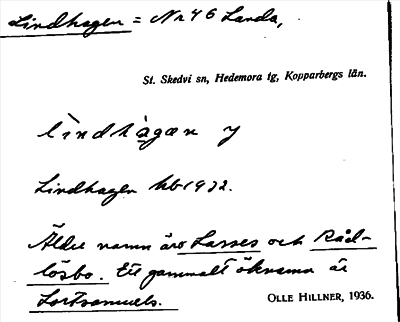 Lindhagen = Nr 46 Landa,
St. Skedvi sn, Hedemora tg, Kopparbergs län.
lìndhàgæn y
Lindhagen hb 1932.
Äldre namn äro Lasses och Råd-
lösbo. Ett gammalt öknamn är
Lortsamuels.
OLLE HILLNER, 1936.